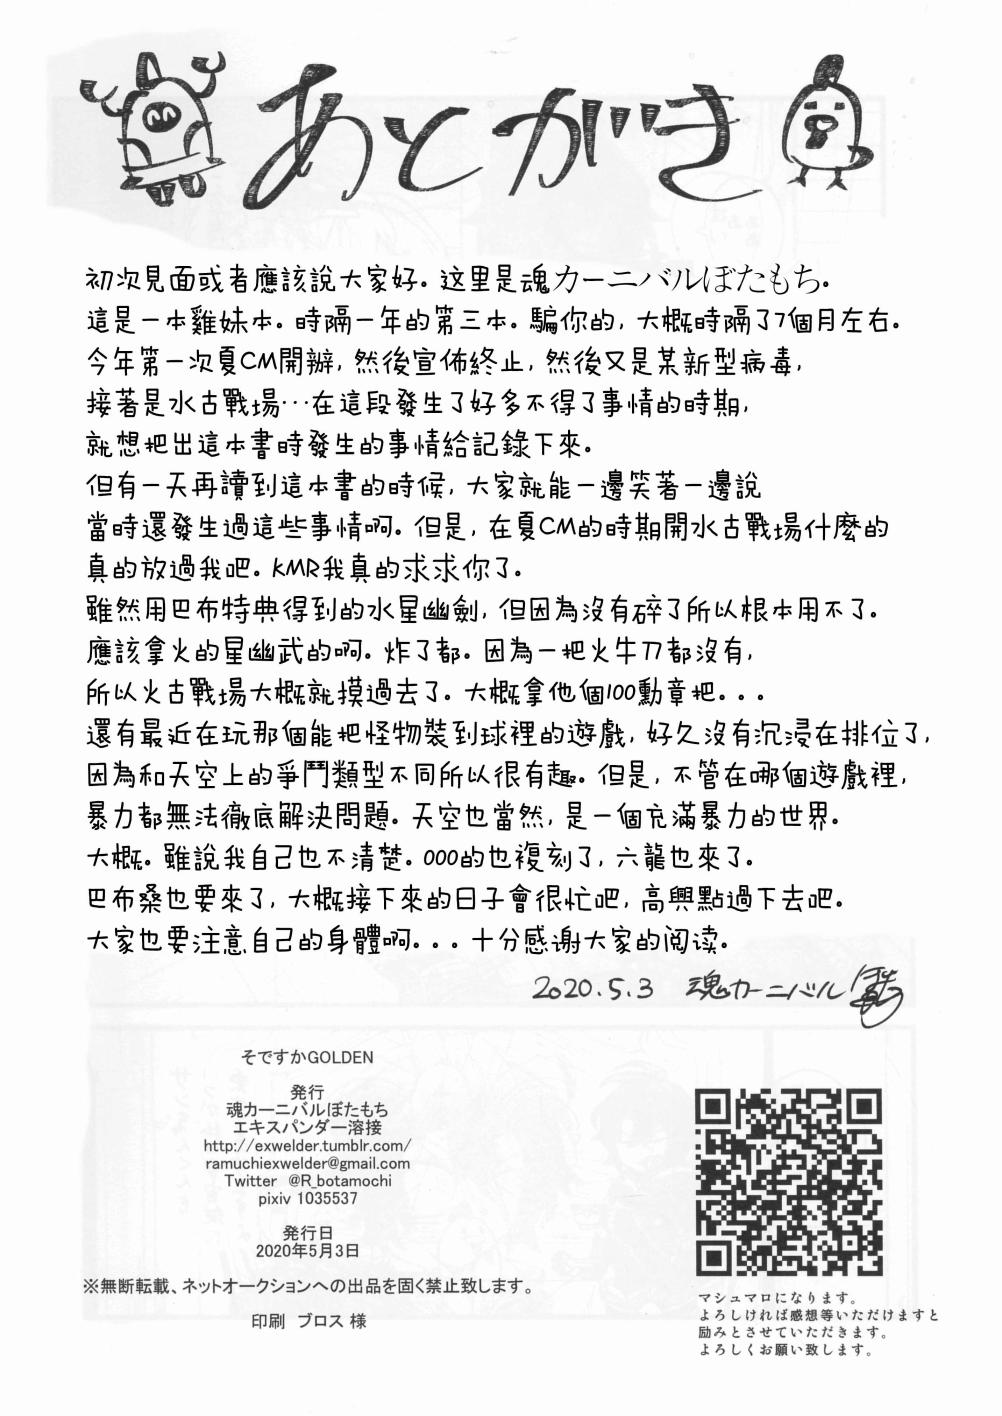 あとがき
初次見面或者應該說大家好。这里是魂カーニバルぼたもち。
這是一本雞妹本。時隔一年的第三本。騙你的, 大概時隔了7個月左右。
今年第一次夏CM開辦, 然後宣佈終止, 然後又是某新型病毒,
接著是水古戰場…在這段發生了好多不得了事情的時期,
就想把出這本書時發生的事情給記錄下來。
但有一天再讀到這本書的時候, 大家就能一邊笑著一邊說
當時還發生過這些事情啊。但是, 在夏CM的時期開水古戰場什麼的
真的放過我吧。KMR我真的求求你了。
雖然用巴布特典得到的水星幽劍, 但因為沒有碎了所以根本用不了。
應該拿火的星幽武的啊。炸了都。因為一把火牛刀都沒有,
所以火古戰場大概就摸過去了。大概拿他個100勳章把。。。
還有最近在玩那個能把怪物裝到球裡的遊戲, 好久沒有沉浸在排位了,
因為和天空上的爭鬥類型不同所以很有趣。但是, 不管在哪個遊戲裡,
暴力都無法徹底解決問題。天空也當然, 是一個充滿暴力的世界。
大概。雖說我自己也不清楚。000的也複刻了, 六龍也來了。
巴布桑也要來了, 大概接下來的日子會很忙吧, 高興點過下去吧。
大家也要注意自己的身體啊。。。十分感谢大家的阅读。
2020.5.3 魂カーニバル
そですかGOLDEN
発行
魂カーニバルぼたもち
エキスパンダー溶接
http://exwelder.tumblr.com/
ramuchiexwelder@gmail.com
Twitter @R_botamochi
pixiv 1035537
発行日
2020年5月3日
※無断転載、ネットオークションへの出品を固く禁止致します。
印刷 ブロス 様
マシュマロになります。
よろしければ感想等いただけますと
励みとさせていただきます。
よろしくお願い致します。